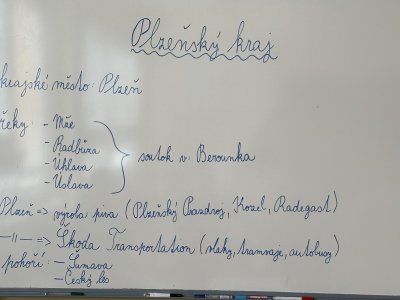 Plzeňský kraj
krajské město: Plzeň
řeky: - Mže
- Radbuza
- Úhlava
- Úslava
soutok v: Berounka
Plzeň => výroba piva (Plzeňský Prazdroj, Kozel, Radegast)
—||— => Škoda Transportation (vlaky, tramvaje, autobusy)
pohoří: - Šumava
- Český les